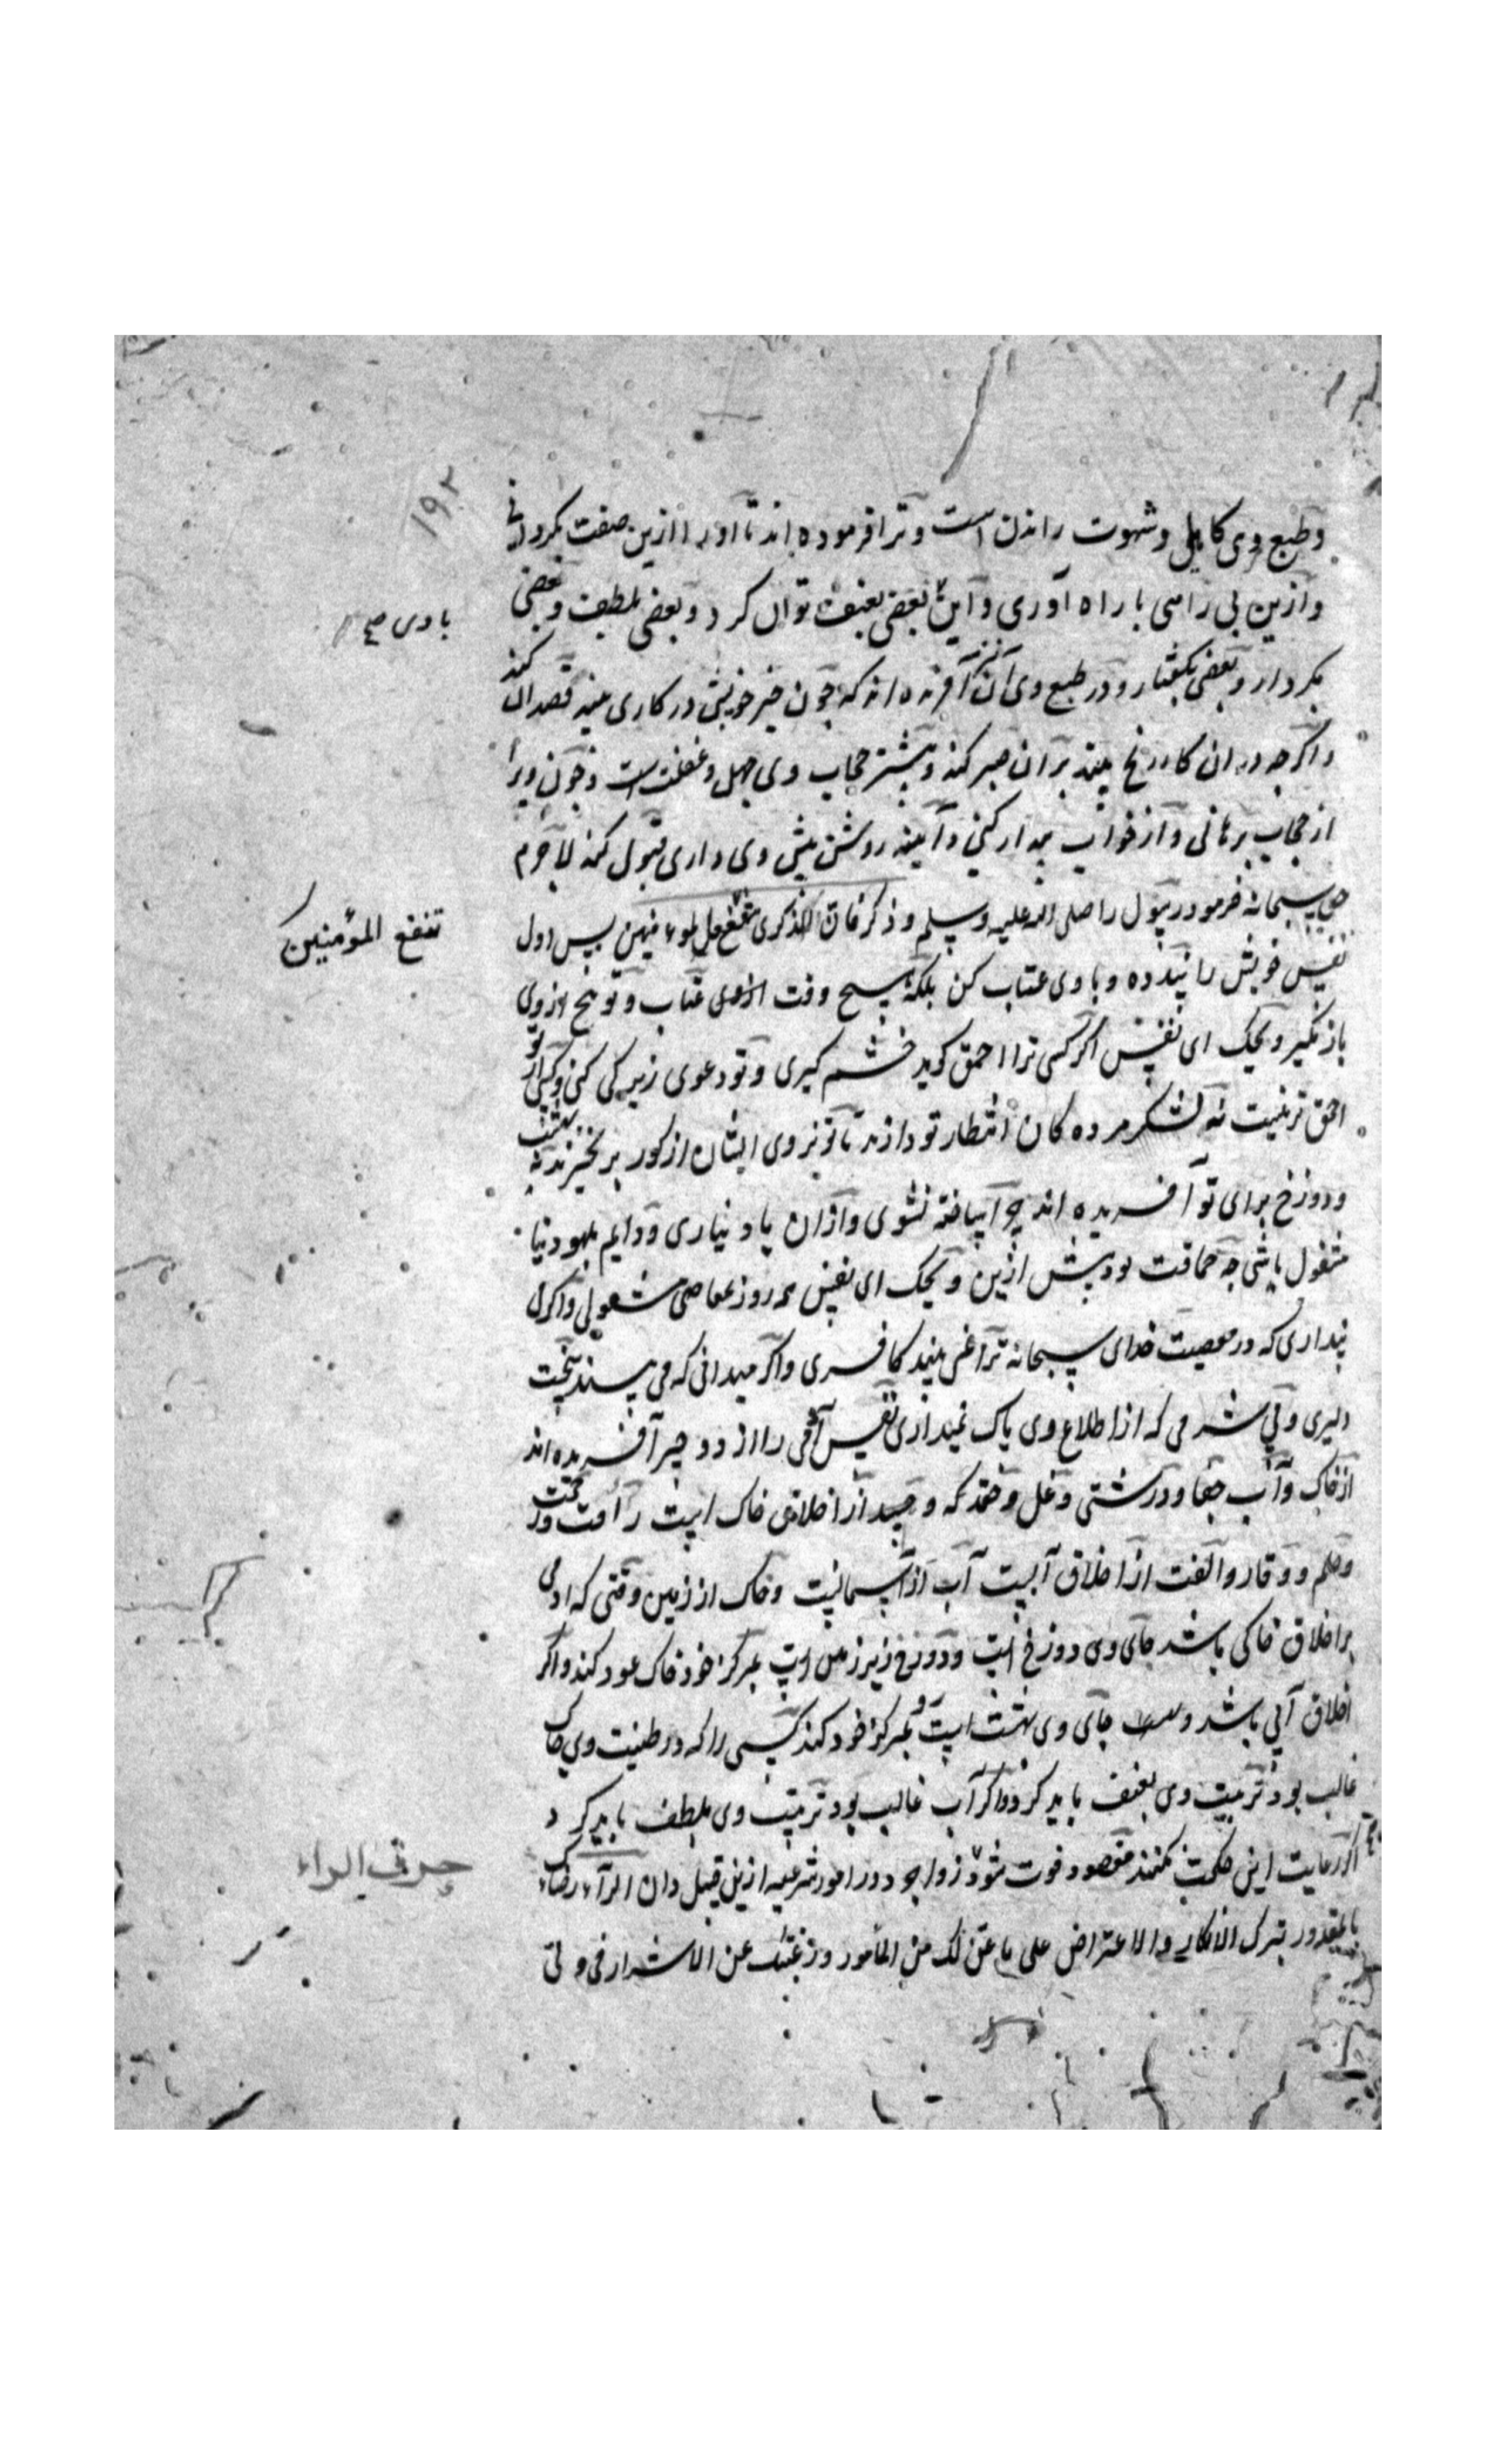 ١٩٢
وطبع وی کاهلی وشهوت راندن است وترا فرموده اند تا اورا ازین صفت بگردانی
وازین بی راهی با راه آوری واین بعضی بعنف توان کرد وبعضی بلطف وبعضی
با وی صح
بکردار وبعضی بگفتار ودر طبع وی آن آفریده اند که چون خیر خویش در کاری بیند قصد آن کند
واکرچه در ان کار رنج بیند بران صبر کند وبیشتر حجاب وی جهل وغفلت است وچون ویرا
از حجاب برهانی واز خواب بیدار کنی وآیینه روشن پیش وی داری قبول کند لاجرم
حق سبحانه فرمود رسول را صلی الله علیه وسلم وذکر فان الذکری تنفع المومنین پس اول
تنفع المؤمنین
نفس خویش را پند ده وبا وی عتاب کن بلکه هیچ وقت عتاب وتوبیخ از وی
باز مگیر ویحک ای نفس اکر کسی ترا احمق کوید خشم کیری وتو دعوی زیرکی کنی وکسی از تو
احمق تر نیست نه لشکر مرده کان انتظار تو دارند تا تو نزوی ایشان از کور بر نخیزند نه بهشت
ودوزخ برای تو آفریده اند چرا ساخته نشوی وازان یاد نیاری ودایم بلهو دنیا
مشغول باشی چه حماقت بود بیش ازین ویحک ای نفس همه روز بمعاصی مشغولی واکر
پنداری که در معصیت خدای سبحانه ترا نمی بیند کافری واکر میدانی که می بیند سخت
دلیری وبی شرمی که از اطلاع وی باک نمیداری نفس آدمی را از دو چیز آفریده اند
از خاک وآب جفا ودرشتی وغل وحقد وحسد از اخلاق خاک است رأفت ورحمت
وحلم ووقار والفت از اخلاق آبست آب از آسمانست وخاک از زمین وقتی که ادمی
بر اخلاق خاکی باشد جای وی دوزخ است ودوزخ زیر زمین است بمرکز خود خاک عود کند واکر
اخلاق آبی باشد جای وی بهشت است بمرکز خود کند کسی را که در طینت وی خاک
غالب بود تربیت وی بعنف باید کرد واکر آب غالب بود تربیت وی بلطف باید کرد
اکر رعایت این حکمت نکنند مقصود فوت شود زواجر در امور شرعیه ازین قبیل دان الراء رضاک
حرف الراء
بالمقدور بترک الانکار والاعتراض علی ما عن لک من المأمور ورغبتک عن الاشرار فی